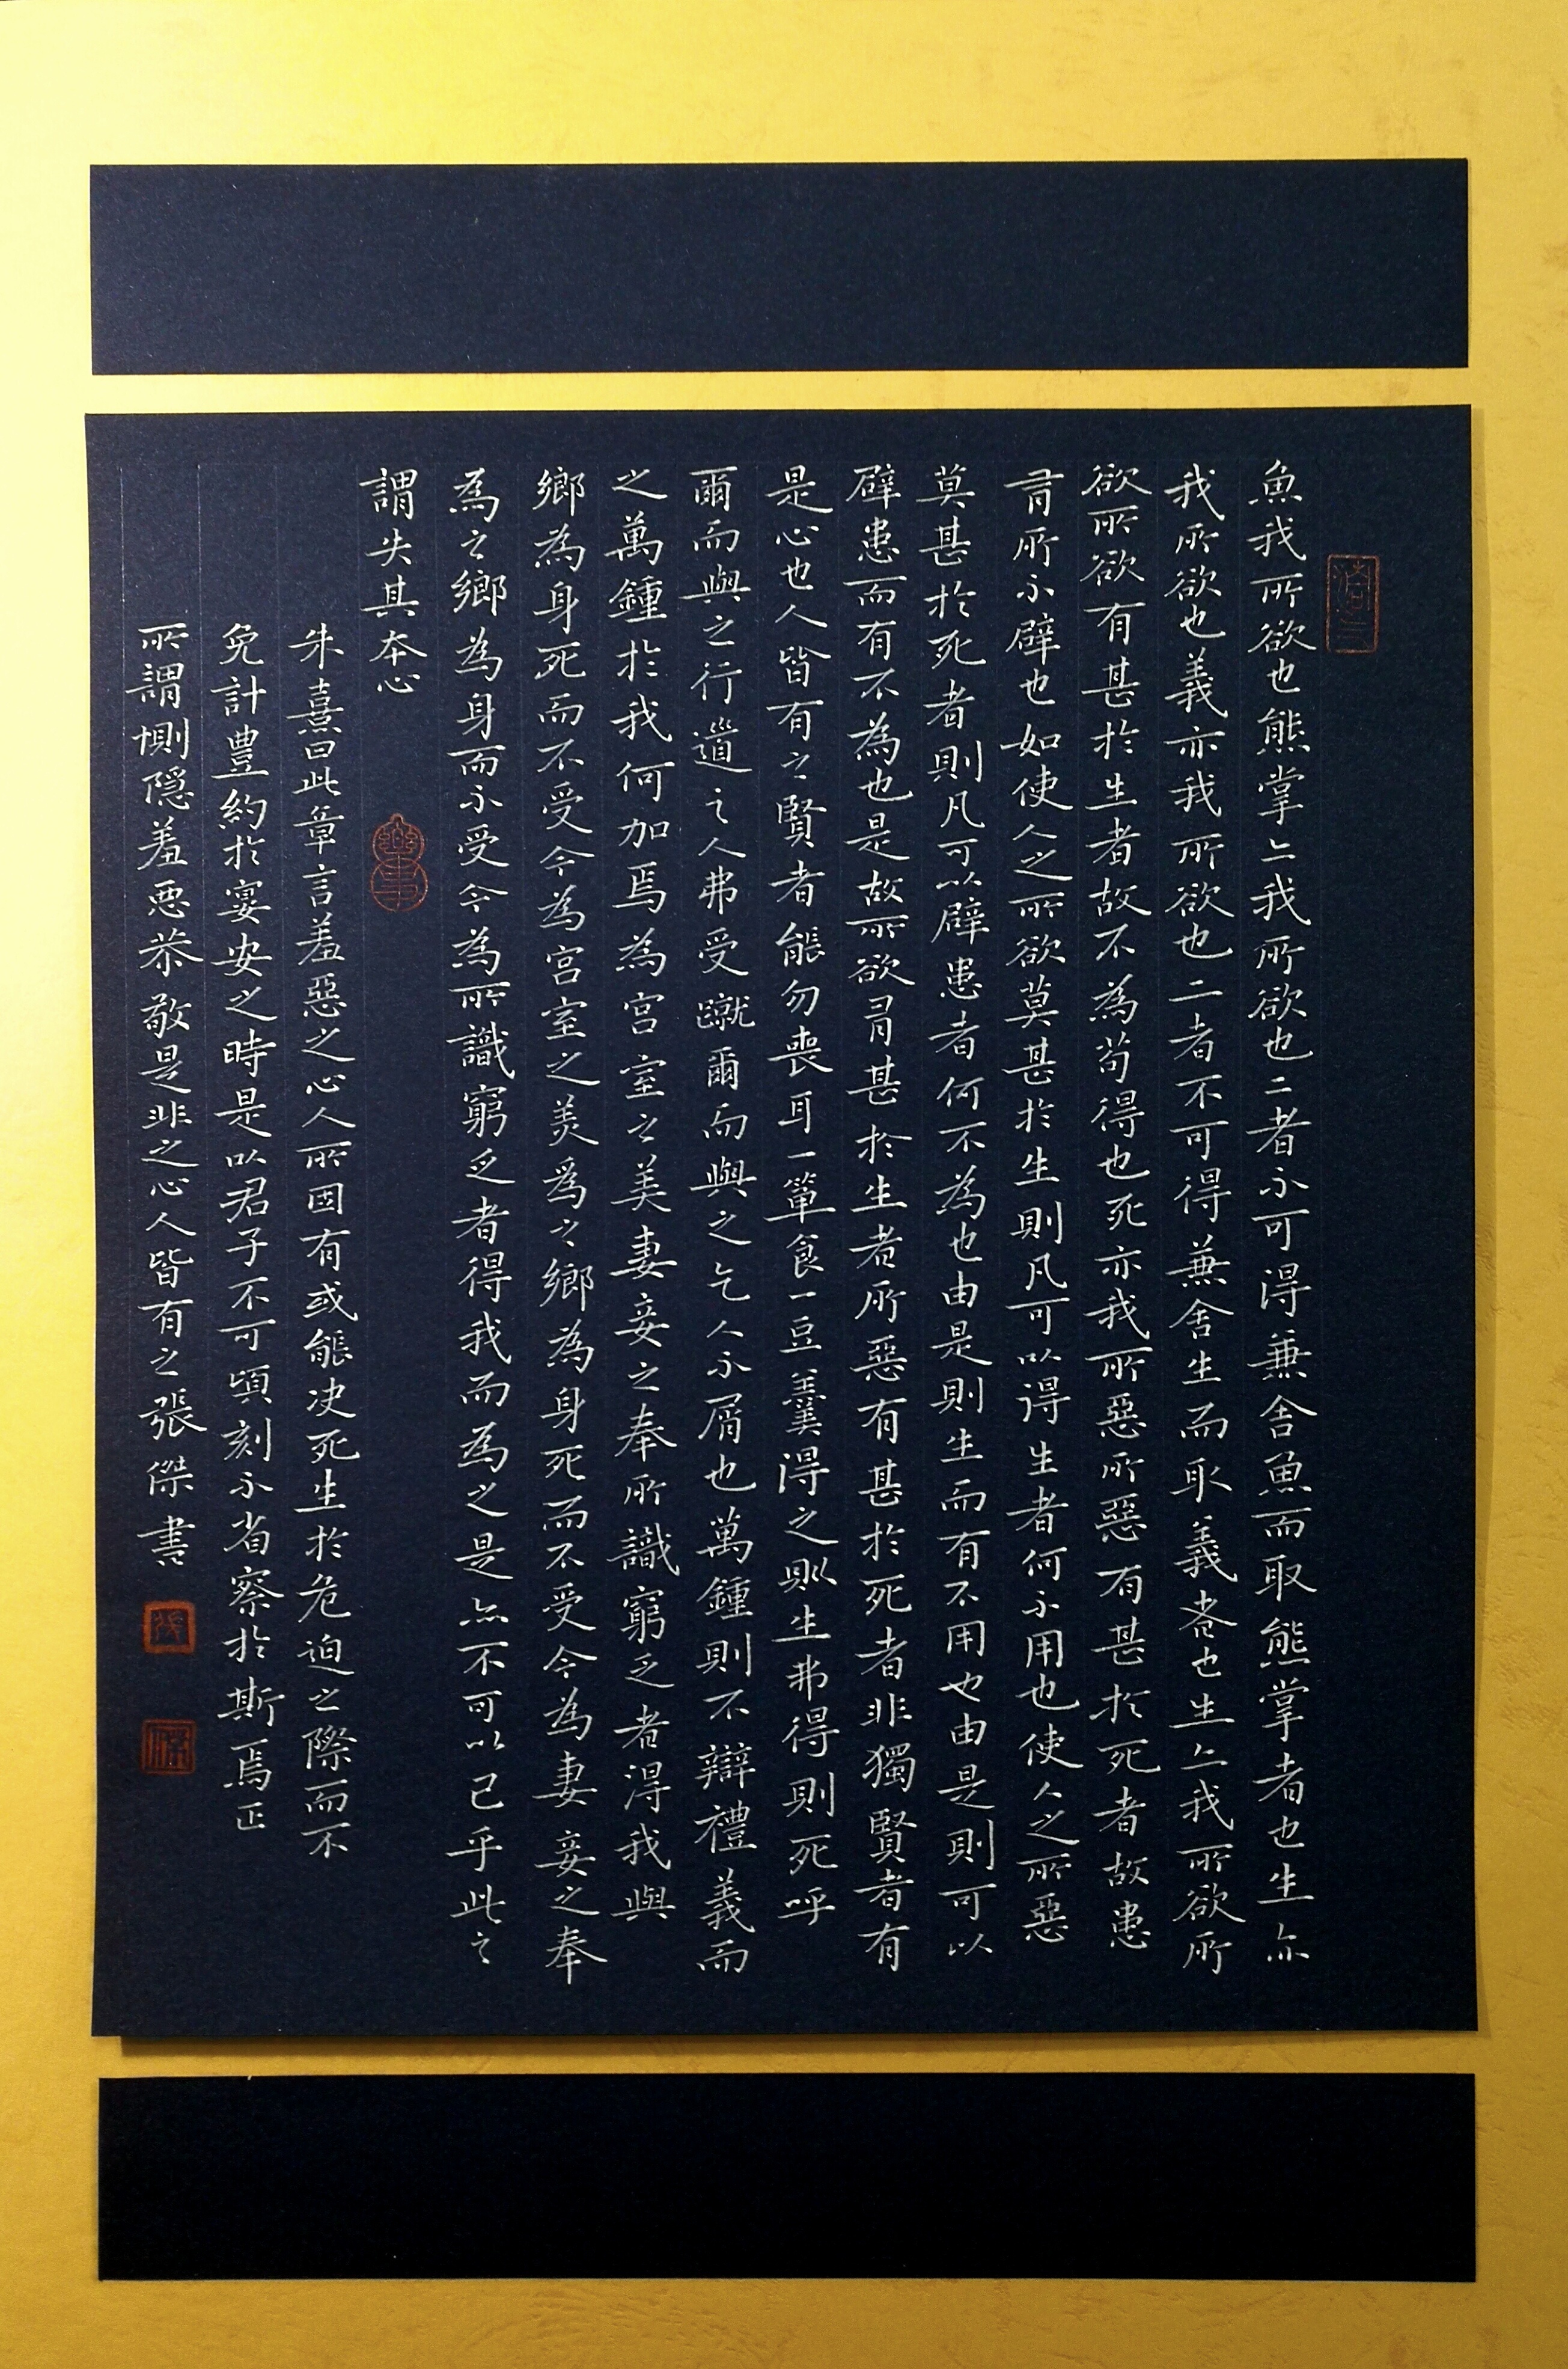 魚我所欲也熊掌亦我所欲也二者不可得兼舍魚而取熊掌者也生亦
我所欲也義亦我所欲也二者不可得兼舍生而取義者也生亦我所欲所
欲所欲有甚於生者故不為苟得也死亦我所惡所惡有甚於死者故患
有所不辟也如使人之所欲莫甚於生則凡可以得生者何不用也使人之所惡
莫甚於死者則凡可以辟患者何不為也由是則生而有不用也由是則可以
辟患而有不為也是故所欲有甚於生者所惡有甚於死者非獨賢者有
是心也人皆有之賢者能勿喪耳一簞食一豆羹得之則生弗得則死呼
爾而與之行道之人弗受蹴爾而與之乞人不屑也萬鍾則不辯禮義而
之萬鍾於我何加焉為宮室之美妻妾之奉所識窮乏者得我與
鄉為身死而不受今為宮室之美為之鄉為身死而不受今為妻妾之奉
為之鄉為身而不受今為所識窮乏者得我而為之是亦不可以已乎此之
謂失其本心
朱熹曰此章言羞惡之心人所固有或能決死生於危迫之際而不
免計豊約於宴安之時是以君子不可頃刻不省察於斯焉正
所謂惻隱羞惡恭敬是非之心人皆有之張傑書